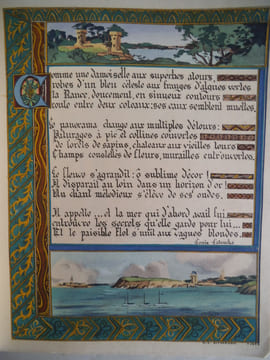 Comme une damoiselle aux superbes atours,
robes d'un bleu céleste aux franges d'algues vertes
la Rance, doucement, en sinueux contours
coule entre deux coteaux: ses eaux semblent muettes.
Le panorama change aux multiples détours:
Pâturages à pic et collines couvertes
de forêts de sapins, châteaux aux vieilles tours
Champs constellés de fleurs, murailles entr'ouvertes.
Le fleuve s'agrandit: ô sublime décor!
Il disparaît au loin dans un horizon d'or!
Un chant mélodieux s'élève de ses ondes.
Il appelle...et la mer qui d'abord
entr'ouvre les secrets qu'elle garde pour lui...
Et le paisible flot s'unit aux vagues blondes.